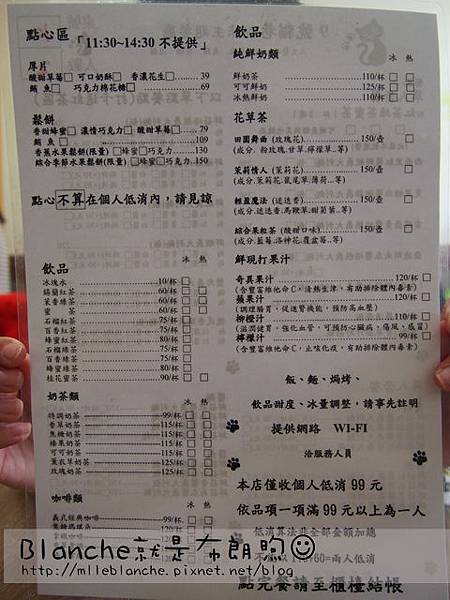 點心區「11:30~14:30 不提供」
厚片
酸甜草莓□ 可口奶酥□ 香濃花生□......39
鮪魚□ 巧克力棉花糖□......69
鬆餅
香甜蜂蜜□ 濃情巧克力□ 酸甜草莓□......79
鮪魚□......109
香蕉水果鬆餅(限量) □蜂蜜□巧克力...130
綜合季節水果鬆餅(限量) □蜂蜜□巧克力..150
點心不算在個人低消內，請見諒
飲品
冰 熱
冰塊水......10/杯 □
錫蘭紅茶......60/杯 □ □
茉香綠茶......60/杯 □ □
蜜 茶......60/杯 □ □
石榴紅茶......80/杯 □
百香紅茶......80/杯 □
蜂蜜紅茶......80/杯 □
石榴綠茶......80/杯 □
百香綠茶......80/杯 □
蜂蜜綠茶......80/杯 □
桂花蜜茶......90/杯 □ □
奶茶類
冰 熱
特調奶茶......99/杯 □ □
香草奶茶......115/杯 □ □
焦糖奶茶......115/杯 □ □
榛果奶茶......115/杯 □ □
可可奶茶......115/杯 □ □
薰衣草奶茶......125/杯 □ □
玫瑰奶茶......125/杯 □ □
咖啡類
冰 熱
義式經典咖啡......99/杯 □ □
飲品
純鮮奶類
冰 熱
鮮奶茶......110/杯 □ □
可可鮮奶......125/杯 □ □
冰熱鮮奶......110/杯 □ □
花草茶
田園舞曲 (玫瑰花)......150/壺 □
(成分.粉玫瑰.甘草.檸檬草..等)
茉莉情人 (茉莉花)......150/壺 □
(成分.茉莉花.鼠尾草.薄荷...等)
輕盈魔法 (迷迭香)......150/壺 □
(成分.迷迭香.馬鞭草.甜菊葉..等)
綜合果粒茶 (酸甜口味)......150/壺 □
(成分.藍莓.洛神花.覆盆莓..等)
鮮現打果汁
奇異果汁......120/杯 □
(含豐富維他命C，清熱生津，有助排除體內毒素)
蘋果汁......120/杯 □
(調理腸胃，促進腎機能，預防高血壓)
柳橙汁......110/杯 □
(滋潤健胃，強化血管，可預防心臟病、傷風、感冒)
檸檬汁......99/杯 □
(含豐富維他命C，止咳化痰，有助排除體內毒素)
飯、麵、焗烤、
飲品甜度、冰量調整，請事先註明
提供網路 WI-FI
洽服務人員
本店僅收個人低消 99 元
依品項一項滿 99 元以上為一人
低消算法非全部金額加總
+60=兩人低消
點完餐請至櫃檯結帳
Blanche就是布朗煦☺
http://mlleblanche.pixnet.net/blog